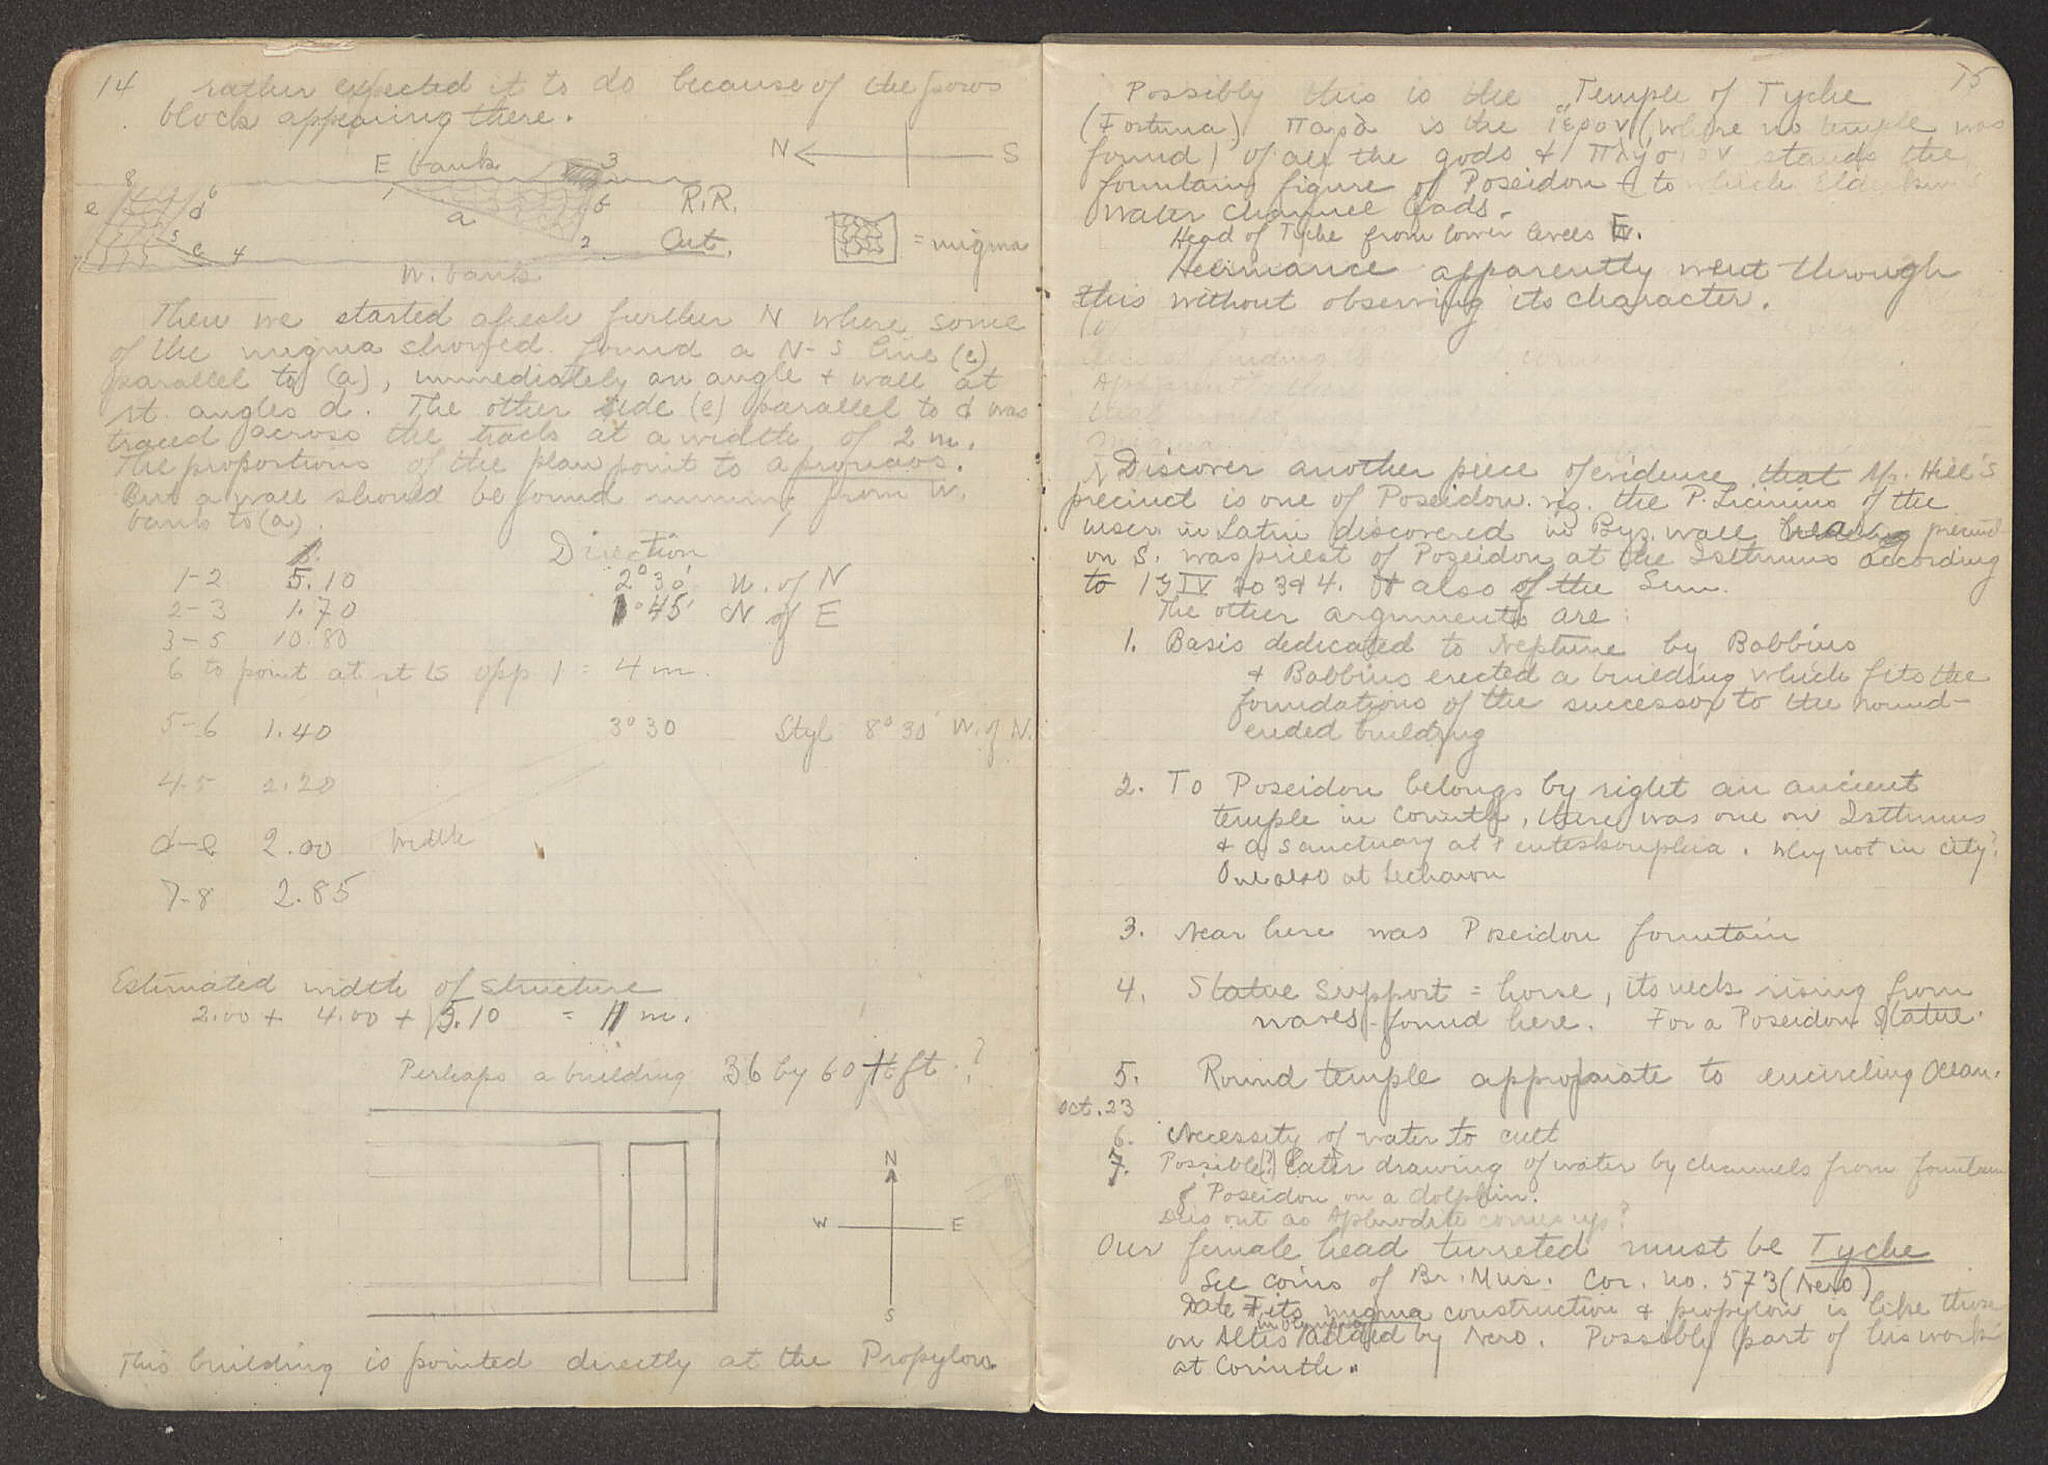 14
rather expected it to do because of the poros
block appearing there.
N S
E bank 3
8 6 1 6 R.R.
e d a
5 c 4 2 Cut.
7
= migma
W. bank
Then we started afresh further N where some
of the migma showed. found a N-S line (c)
parallel to (a), immediately an angle + wall at
rt. angles d. The other side (e) parallel to d was
traced across the track at a width of 2 m.
The proportions of the plan point to a pronaos.
But a wall should be found running from W.
bank to (a).
Direction
1-2 5.10 2°30' W. of N
2-3 1.70 1°45' N of E
3-5 10.80
6 to point at rt ∠s opp 1 = 4 m.
5-6 1.40 3°30 Styl 8°30' W. of N.
4-5 2.20
d-e 2.00 width
7-8 2.85
Estimated width of structure
2.00 + 4.00 + 5.10 = 11 m.
Perhaps a building 36 by 60 ft.?
N
W E
S
This building is pointed directly at the Propylon.
15
Possibly this is the "Temple of Tyche
(Fortuna) παρὰ is the ιερον (where no temple was
found) of all the gods + πλησιον stands the
fountain figure of Poseidon to which Elderkin's
water channel leads.
Head of Tyche from lower levels E.
Heermance apparently went through
this without observing its character.
Discover another piece of evidence that Mr. Hill's
precinct is one of Poseidon. viz. the P. Licinius of the
inscr. in Latin discovered in Byz. wall precinct
on S. was priest of Poseidon at the Isthmus according
to IG IV no 394. also of the Sun.
The other arguments are:
1. Basis dedicated to Neptune by Babbius
+ Babbius erected a building which fits the
foundations of the successor to the round-
ended building
2. To Poseidon belongs by right an ancient
temple in Corinth, there was one on Isthmus
+ a sanctuary at Penteskouphia. Why not in city?
One also at Lechaion
3. Near here was Poseidon fountain
4. Statue support = horse, its neck rising from
waves - found here. For a Poseidon statue.
5. Round temple appropriate to encircling Ocean.
Oct. 23
6. Necessity of water to cult
7. Possible(?) later drawing of water by channels from fountain
of Poseidon on a dolphin.
Dies out as Aphrodite comes up?
Our female head turreted must be Tyche
See coins of Br. Mus. Cor. no. 573 (Nero)
Date its migma construction + propylon is like those
on Altis in Olympia by Nero. Possibly part of his work
at Corinth."